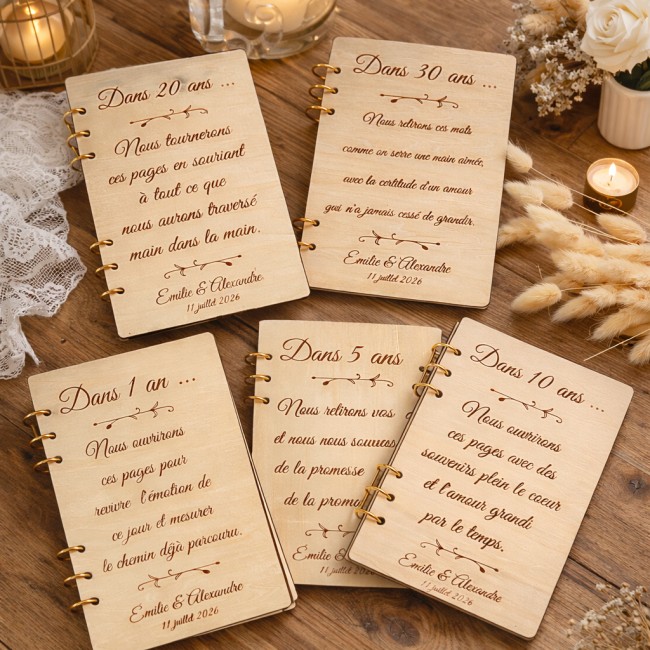 Dans 20 ans ...
Nous tournerons
ces pages en souriant
à tout ce que
nous aurons traversé
main dans la main.
Emilie & Alexandre
11 juillet 2026
Dans 30 ans ...
Nous relirons ces mots
comme on serre une main aimée,
avec la certitude d'un amour
qui n'a jamais cessé de grandir.
Emilie & Alexandre
11 juillet 2026
Dans 1 an ...
Nous ouvrirons
ces pages pour
revivre l'émotion de
ce jour et mesurer
le chemin déjà parcouru.
Emilie & Alexandre
11 juillet 2026
Dans 5 ans
Nous relirons vos
et nous nous
de la promesse
de la
Emilie &
11 juillet 2026
Dans 10 ans ...
Nous ouvrirons
ces pages avec des
souvenirs plein le coeur
et l'amour grandi
par le temps.
Emilie & Alexandre
11 juillet 2026